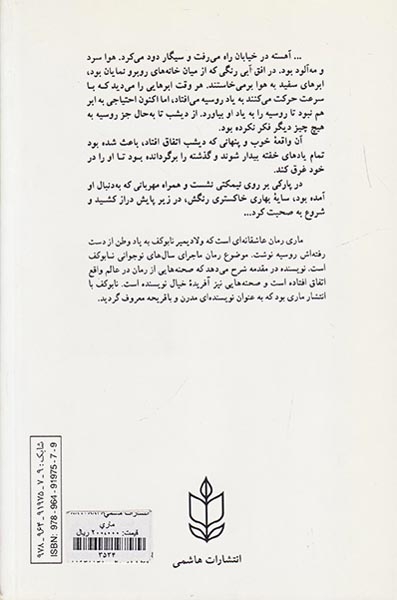 ... آهسته در خیابان راه می‌رفت و سیگار دود می‌کرد. هوا سرد
و مه‌آلود بود. در افق آبی رنگی که از میان خانه‌های روبرو نمایان بود،
ابرهای سفید به هوا برمی‌خاستند. هر وقت ابرهایی را می‌دید که با
سرعت حرکت می‌کنند به یاد روسیه می‌افتاد، اما اکنون احتیاجی به ابر
هم نبود تا روسیه را به یاد او بیاورد. از دیشب تا به‌حال جز روسیه به
هیچ چیز دیگر فکر نکرده بود.
آن واقعهٔ خوب و پنهانی که دیشب اتفاق افتاد، باعث شده بود
تمام یادهای خفته بیدار شوند و گذشته را برگردانده بود تا او را در
خود غرق کند.
در پارکی بر روی نیمکتی نشست و همراه مهربانی که به‌دنبال او
آمده بود، سایهٔ بهاری خاکستری رنگش، در زیر پایش دراز کشید و
شروع به صحبت کرد...
ماری رمان عاشقانه‌ای است که ولادیمیر نابوکف به یاد وطن از دست
رفته‌اش روسیه نوشت. موضوع رمان ماجرای سال‌های نوجوانی نابوکف
است. نویسنده در مقدمه شرح می‌دهد که صحنه‌هایی از رمان در عالم واقع
اتفاق افتاده است و صحنه‌هایی نیز آفریدهٔ خیال نویسنده است. نابوکف با
انتشار ماری بود که به عنوان نویسنده‌ای مدرن و باقریحه معروف گردید.
شابک: ۹-۷-۹۱۹۷۵-۹۶۴-۹۷۸
ISBN: 978-964-91975-7-9
ماری
قیمت: ۲۰۰,۰۰۰ ریال
۳۵۳۴
انتشارات هاشمی